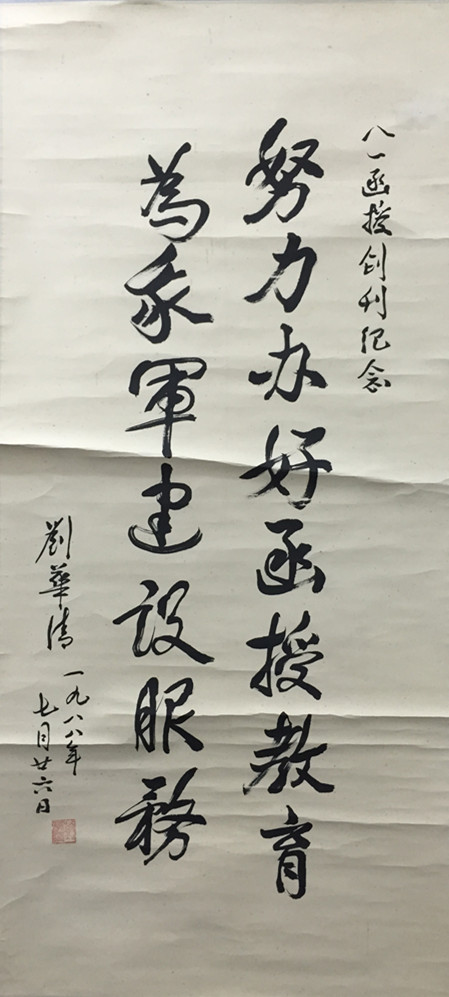 八一函授创刊纪念
努力办好函授教育
为我軍建设服務
劉華清
一九八八年
七月廿六日